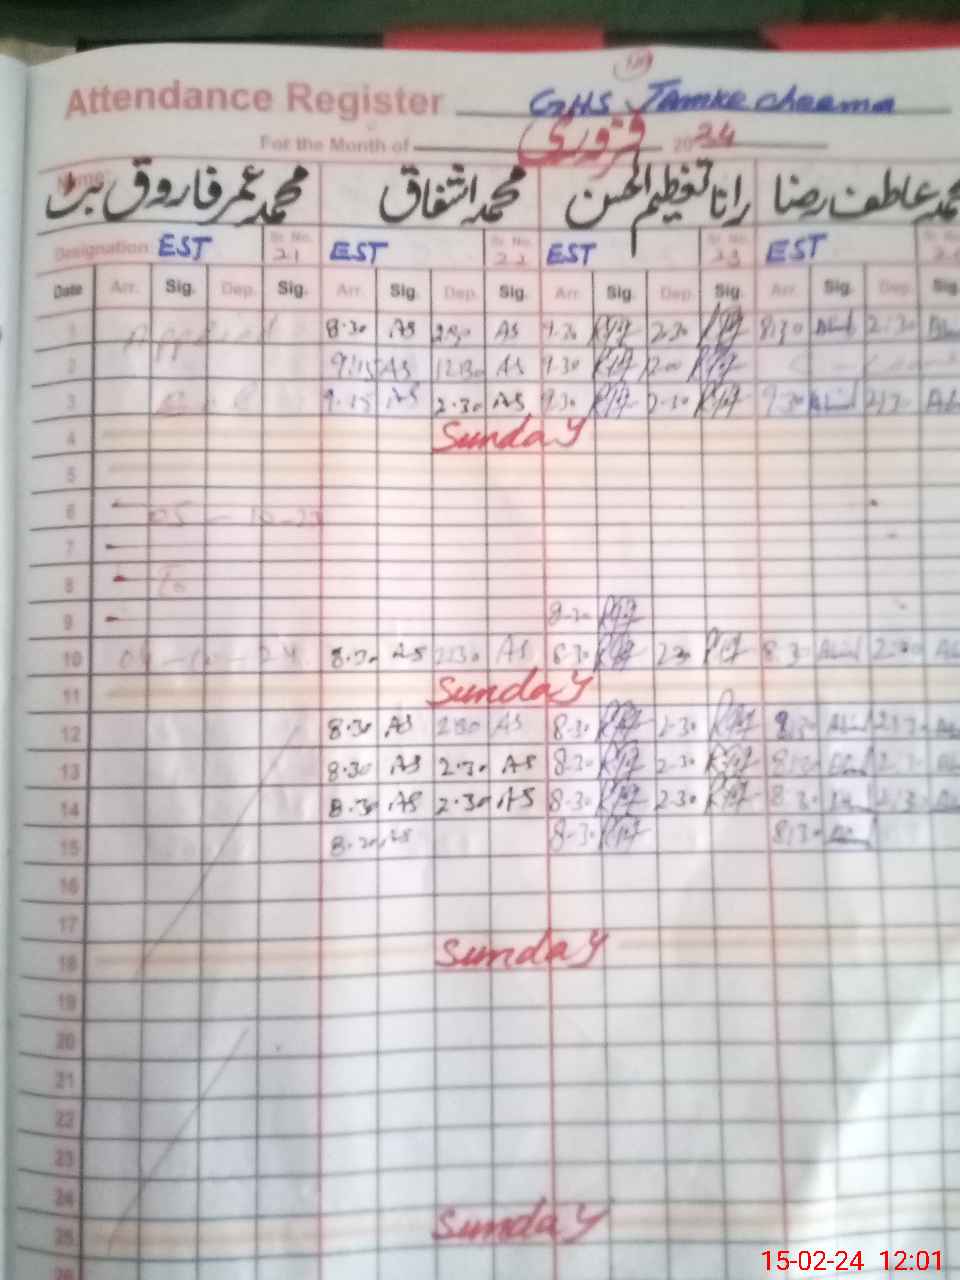 Attendance Register GHS Jamke cheema
For the Month of فروری 2024
Name محمد عمر فاروق بٹ محمد اشفاق رانا تعظیم الحسن محمد عاطف رضا
Designation EST Sr. No. 21 EST Sr. No. 22 EST Sr. No. 23 EST Sr. No.
Date Arr. Sig. Dep. Sig. Arr. Sig. Dep. Sig. Arr. Sig. Dep. Sig. Arr. Sig. Dep. Sig.
1 8.30 AS 2.30 AS 9.30 2.30 8.30 2.30
2 9.15 AS 12.30 AS 9.30 12.00
3 9.15 AS 2.30 AS 9.30 2.30 9.30 2.30
4 Sunday
5
6
7
8 To
9 8.30
10 8.30 AS 2.30 AS 8.30 2.30 8.30 2.30
11 Sunday
12 8.30 AS 2.30 AS 8.30 2.30 8.30 2.30
13 8.30 AS 2.30 AS 8.30 2.30 8.30 2.30
14 8.30 AS 2.30 AS 8.30 2.30 8.30 2.30
15 8.30 AS 8.30 8.30
16
17
18 Sunday
19
20
21
22
23
24
25 Sunday
26
15-02-24 12:01